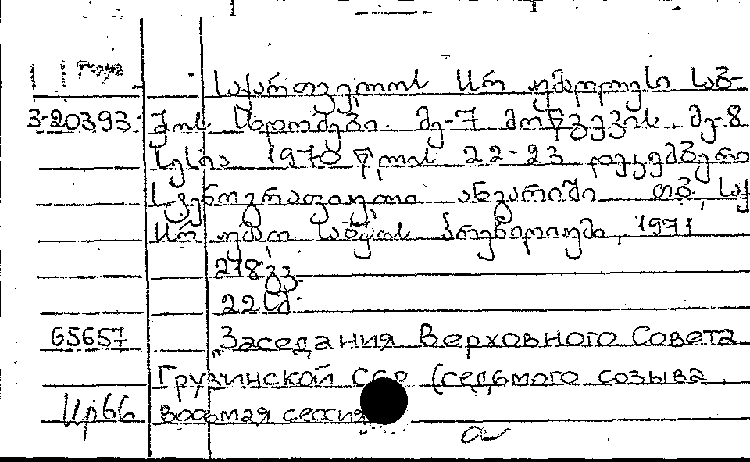 საქართველოს სსრ უმაღლესი საბ-
3-20393 ჭოს სხდომები. მე-7 მოწვევის, მე-8
სესია 1970 წლის 22-23 დეკემბერი
სტენოგრაფიული ანგარიში თბ., საქ
სსრ უმაღ. საბჭოს პრეზიდიუმი, 1971
278 გვ.
22 სმ.
65657 „Заседания Верховного Совета
Грузинской ССР (седьмого созыва,
восьмая сессия